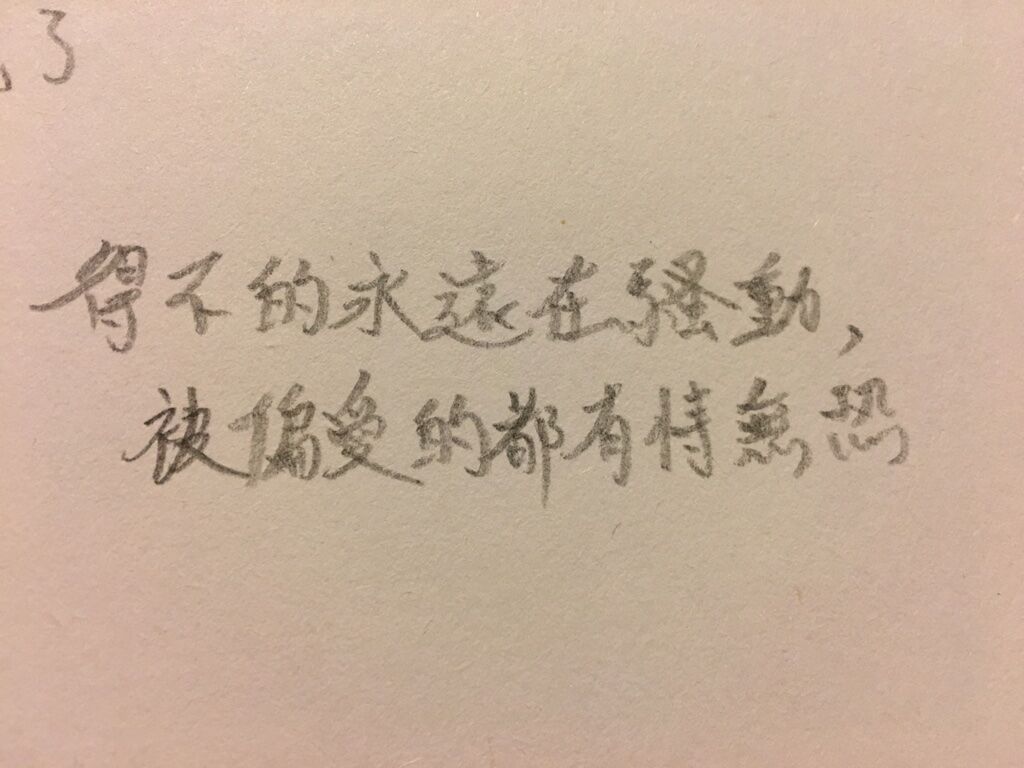 了
得不的永遠在騷動，
被偏愛的都有恃無恐